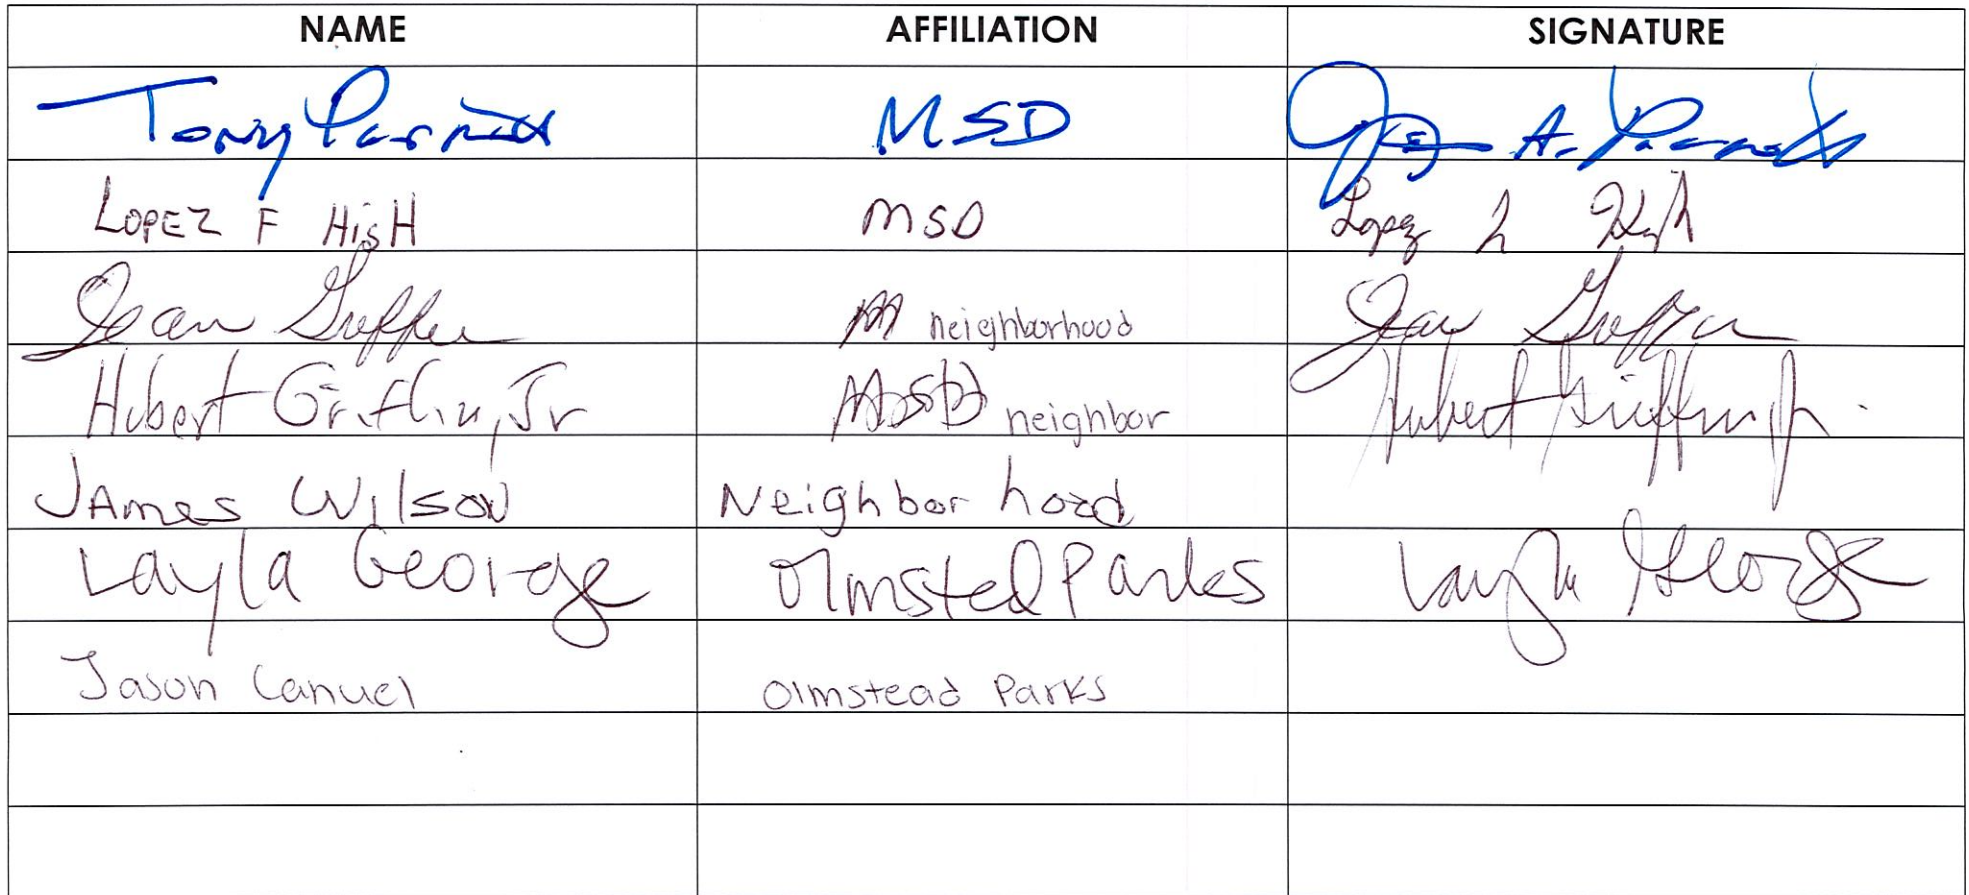 NAME AFFILIATION SIGNATURE
Tony MSD A.
LOPEZ F HigH MSD Lopez High
Jean neighborhood Jean
Hubert Griffin, Jr neighbor Hubert Griffin Jr.
JAmes Wilson Neighbor hood
Layla George Olmsted Parks Layla George
Jason Canuel Olmstead Parks